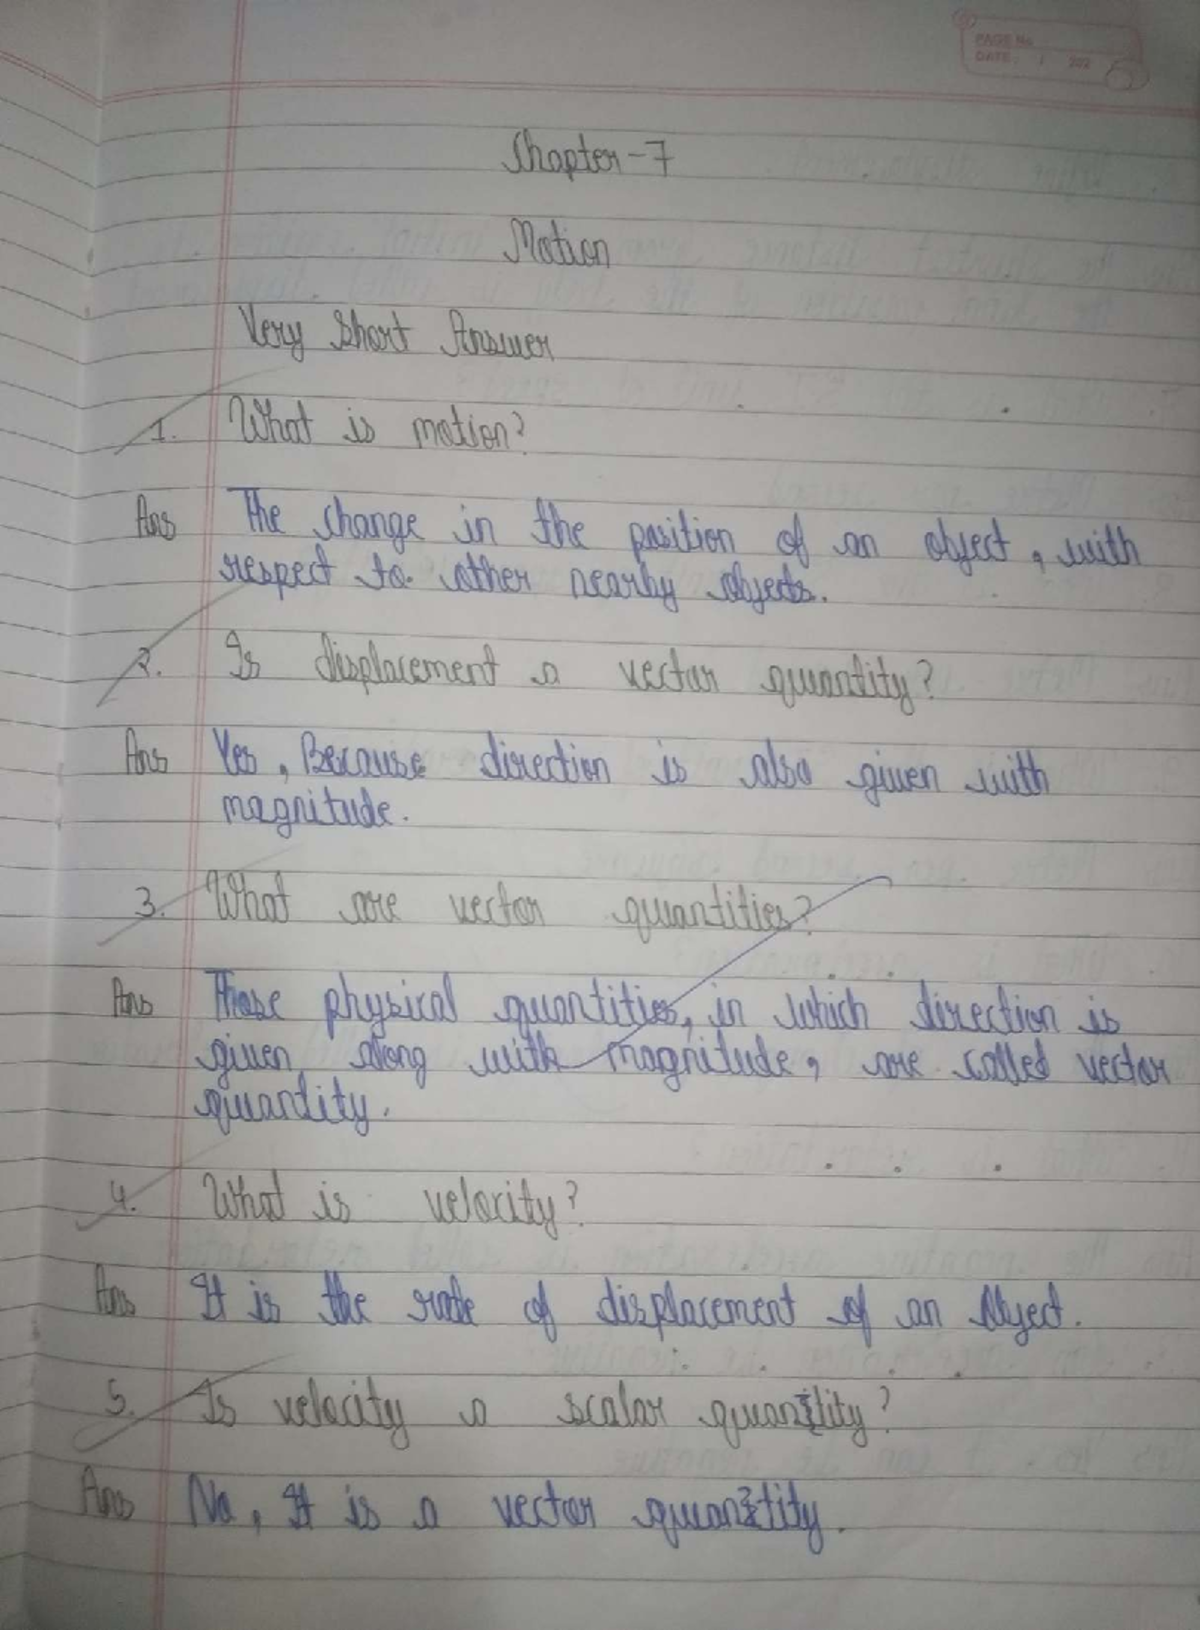 PAGE No.
DATE: / / 202
Chapter-7
Motion
Very Short Answer
1. What is motion?
Ans The change in the position of an object, with
respect to other nearby objects.
2. Is displacement a vector quantity?
Ans Yes, Because direction is also given with
magnitude.
3. What are vector quantities?
Ans Those physical quantities, in which direction is
given along with magnitude, are called vector
quantity.
4. What is velocity?
Ans It is the rate of displacement of an object.
5. Is velocity a scalar quantity?
Ans No, It is a vector quantity.